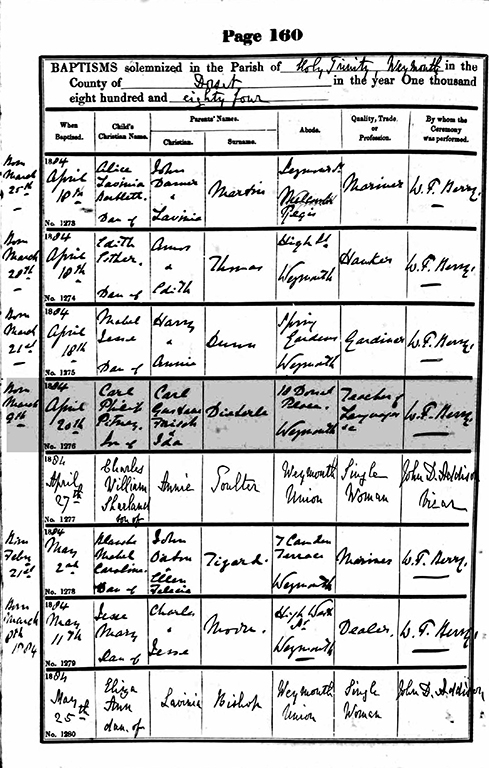 Page 160
BAPTISMS solemnized in the Parish of Holy Trinity, Weymouth in the
County of Dorset in the year One thousand
eight hundred and eighty four
When Baptised. Child's Christian Name. Parents' Names. Abode. Quality, Trade, or Profession. By whom the Ceremony was performed.
Christian. Surname.
Born March 25th 1884 April 18th Alice Lavinia Dau of John & Lavinia Martin Melcombe Regis Mariner W. F. Berry.
No. 1273
Born March 20th 1884 April 18th Edith Esther. Dau of Amos & Edith Thomas High St Weymouth Hawker W. F. Berry.
No. 1274
Born March 21st 1884 April 18th Mabel Jessie Dau of Harry & Annie Dunn Spring Gardens Weymouth Gardiner W. F. Berry.
No. 1275
Born March 9th 1884 April 20th Carl Pitney. Son of Carl & Ida Dieterle 10 Dorset Weymouth Teacher of Languages &c W. F. Berry.
No. 1276
1884 April 27th Charles William son of Annie Weymouth Union Single Woman John D. Addison Vicar
No. 1277
Born Feby 21st 1884 May 2nd Mabel Caroline. Dau of John & Ellen Felicia 7 Camden Terrace Weymouth Mariner W. F. Berry.
No. 1278
Born March 8th 1884 1884 May 11th Jesse Mary Dau of Charles & Jesse Moore. High Weymouth Dealer. W. F. Berry.
No. 1279
1884 May 25th Eliza Ann dau. of Lavinia Bishop Weymouth Union Single Woman John D. Addison
No. 1280